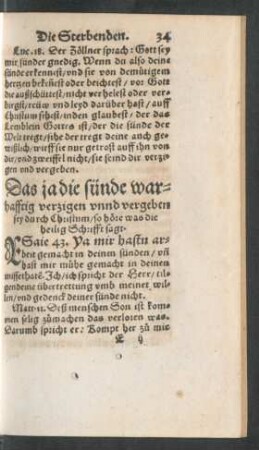 Die Sterbenden. 34
Luc. 18. Der Zöllner sprach: Gott sey
mir sünder gnedig. Wenn du also deine
sünde erkennest/ vnd sie von demütigem
hertzen bekennest oder beichtest/ vor Gott
die außschüttest/ nicht verhelest oder ver-
birgst/ reuw vnd leyd darüber hast/ auff
Christum sihest/ in den glaubest/ der das
Lemblein Gottes ist/ der die sünde der
Welt tregt/ sihe der tregt deine auch ge-
wißlich/ wirff sie nur getrost auff ihn von
dir/ vnd zweiffel nicht/ sie seind dir verzi-
gen vnd vergeben.
Das ja die sünde war-
hafftig verzigen vnnd vergeben
sey durch Christum/ so höre was die
heilig Schrifft sagt.
ESaie 43. Ya mir hastu ar-
beit gemacht in deinen sünden/ vñ
hast mir mühe gemacht in deinen
missethatē. Ich/ ich spricht der Herr/ til-
ge deine übertrettung vmb meinet wil-
len/ vnd gedenck deiner sünde nicht.
Matt. 11. Deß menschen Son ist kom-
men selig zůmachen das verloren was.
Darumb spricht er: Kompt her zů mir
E ij